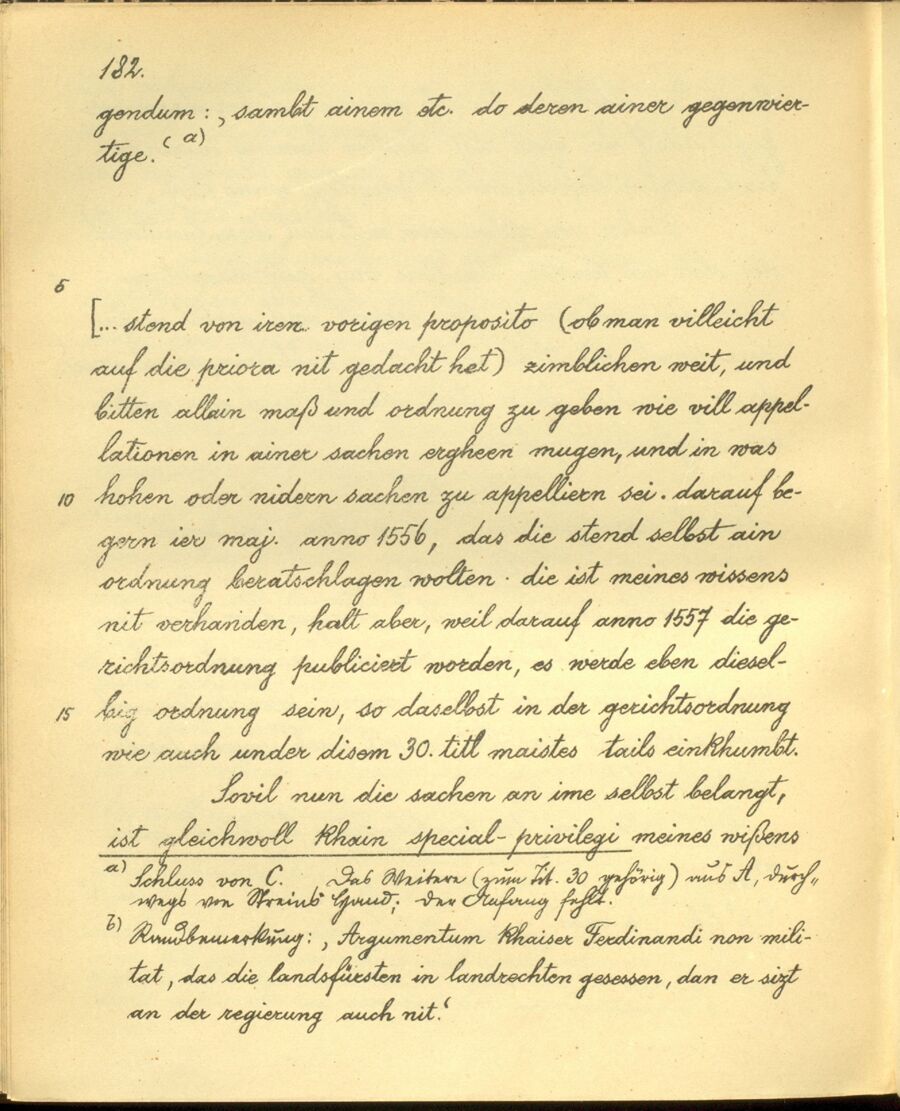 182.
gendum :, sambt ainem etc. do deren ainer gegenwier-
tige.‘ a)
5
[... stend von iren vorigen proposito (ob man villeicht
auf die priora nit gedacht het) zimblichen weit, und
bitten allain maß und ordnung zu geben wie vill appel-
lationen in ainer sachen ergheen mugen, und in was
10 hohen oder nidern sachen zu appelliern sei. darauf be-
gern ier maj. anno 1556, das die stend selbst ain
ordnung beratschlagen wolten. die ist meines wissens
nit verhanden, halt aber, weil darauf anno 1557 die ge-
richtsordnung publiciert worden, es werde eben diesel-
15 big ordnung sein, so daselbst in der gerichtsordnung
wie auch under disem 30. titl maistes tails einkhumbt.
Sovil nun die sachen an ime selbst belangt,
ist gleichwoll khain special-privilegi meines wißens
a) Schluss von C. Das Weitere (zum Tit. 30 gehörig) aus A, durch-
wegs von Streins Hand; der Anfang fehlt.
b) Randbemerkung: ‚Argumentum khaiser Ferdinandi non mili-
tat, das die landsfürsten in landrechten gesessen, dan er sizt
an der regierung auch nit.‘